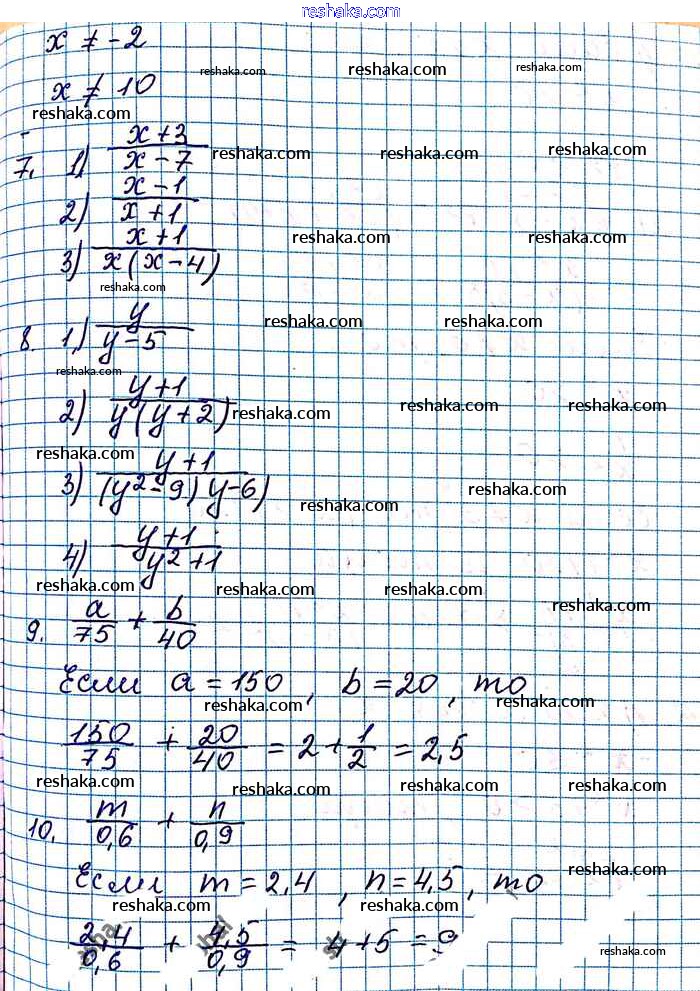 reshaka.com
x ≠ -2
reshaka.com reshaka.com reshaka.com
x ≠ 10
reshaka.com
7. 1) (x+3)/(x-7) reshaka.com reshaka.com reshaka.com
2) (x-1)/(x+1)
reshaka.com reshaka.com
3) (x+1)/(x(x-4))
reshaka.com
8. 1) y/(y-5) reshaka.com reshaka.com
reshaka.com
2) (y+1)/(y(y+2)) reshaka.com reshaka.com reshaka.com
reshaka.com
3) (y+1)/((y²-9)(y-6)) reshaka.com
reshaka.com
4) (y+1)/(y²+1)
reshaka.com reshaka.com reshaka.com
9. a/75 + b/40 reshaka.com
Если a = 150, b = 20, то
reshaka.com reshaka.com reshaka.com
150/75 + 20/40 = 2 + 1/2 = 2,5
reshaka.com reshaka.com reshaka.com reshaka.com
10. m/0,6 + n/0,9
reshaka.com
Если m = 2,4, n = 4,5, то
reshaka.com reshaka.com
2,4/0,6 + 4,5/0,9 = 4 + 5 = 9
reshaka.com